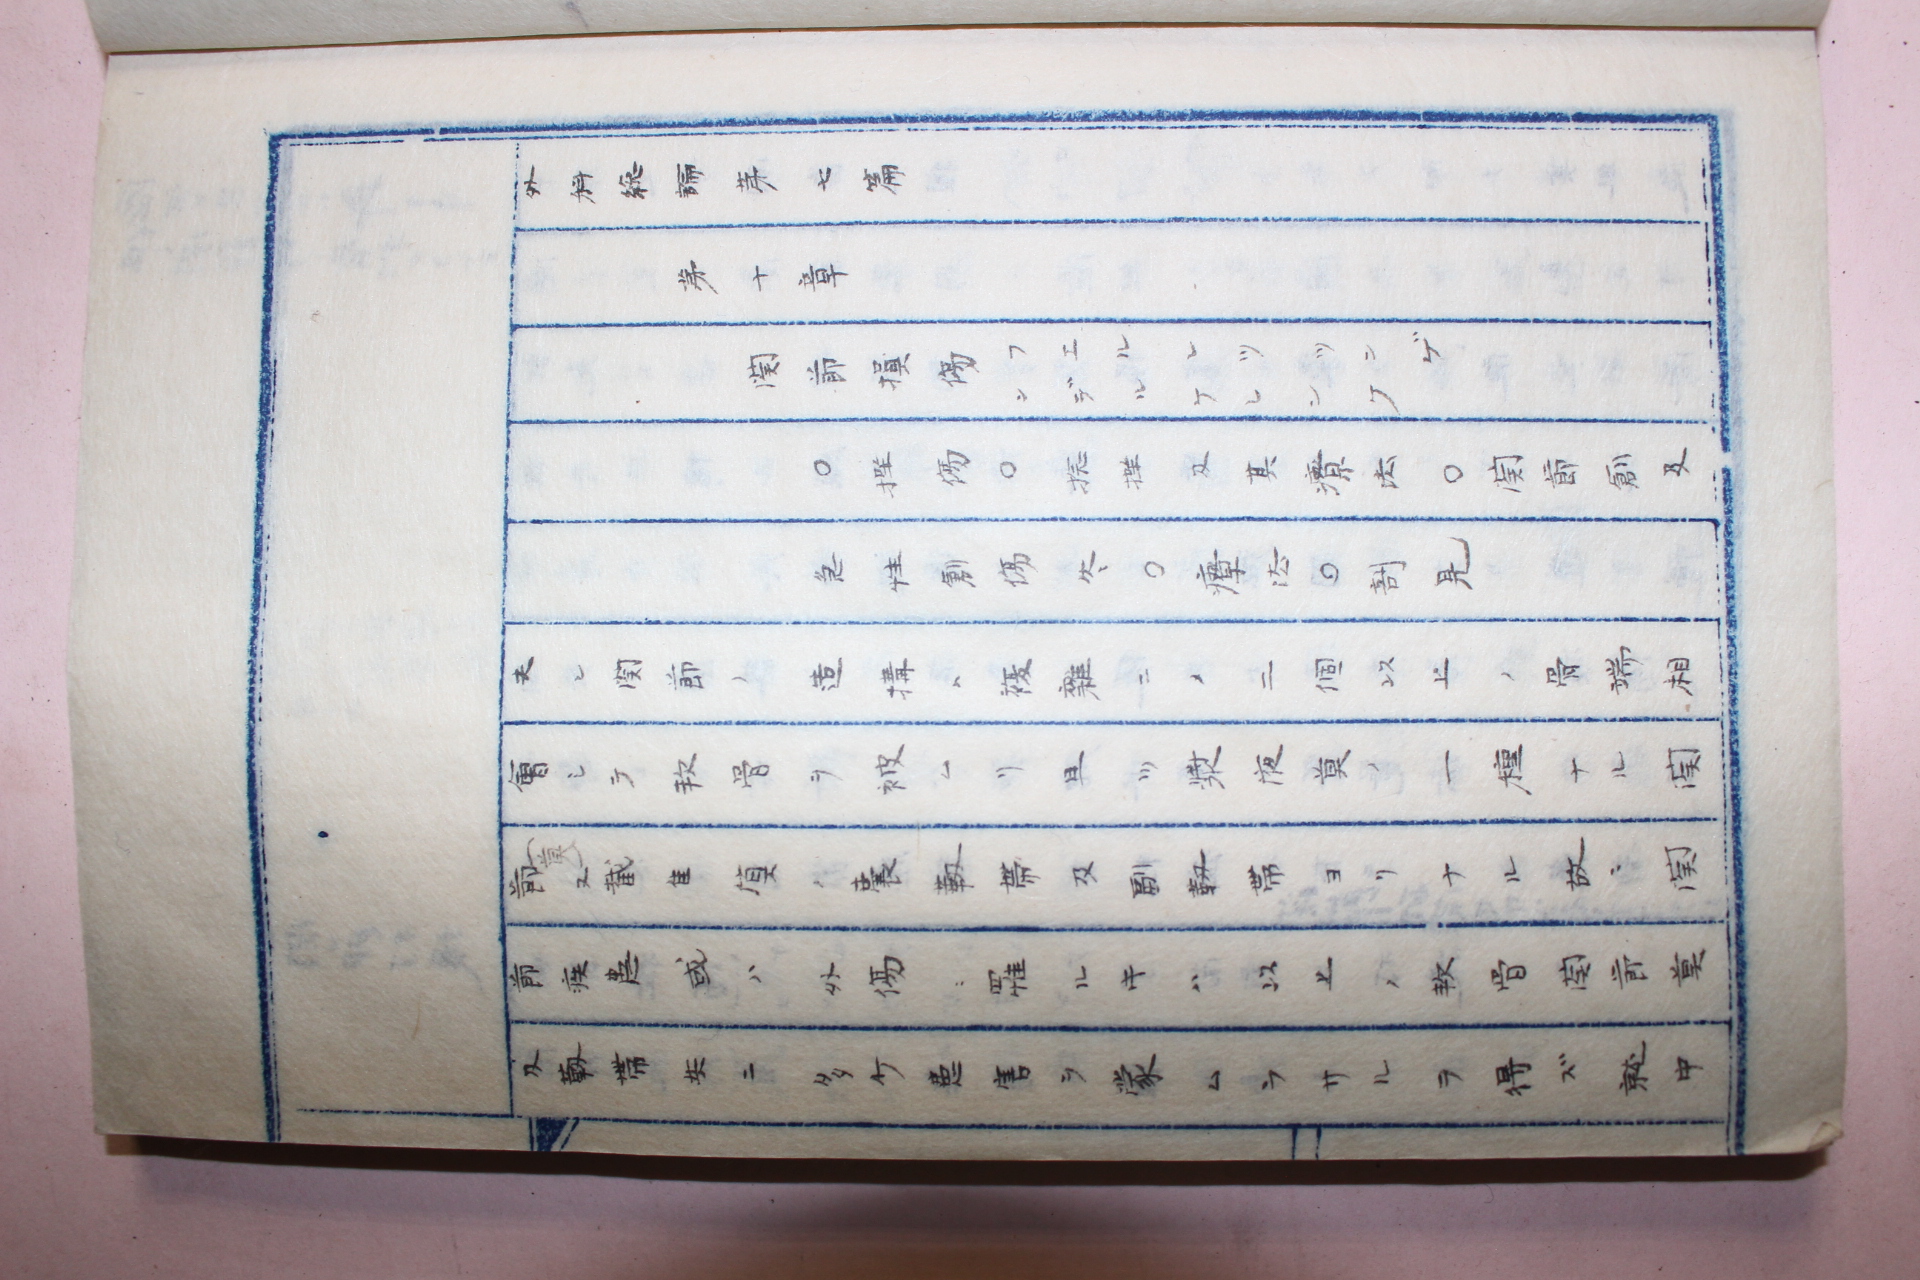 外科総論第七篇
第十章
関節損傷 フエルレツツンゲ
ンデルケレンケ
○挫傷○捻挫及其療法○関節創及
急性創傷炎○療法○剖見
夫レ関節ノ造構ハ複雑ニノ二個以上ノ骨端相
會シテ軟骨ヲ被ムリ且ツ漿液莫ノ一種ナル関
節(莫)又截隹傎ノ嚢靱帯及副靱帯ヨリナル故ニ関
節疾患或ハ外傷ニ罹ルキハ以上ノ軟骨関節莫
及靱帯共ニ多ケ患害ヲ蒙ムラサルヲ得ズ就中